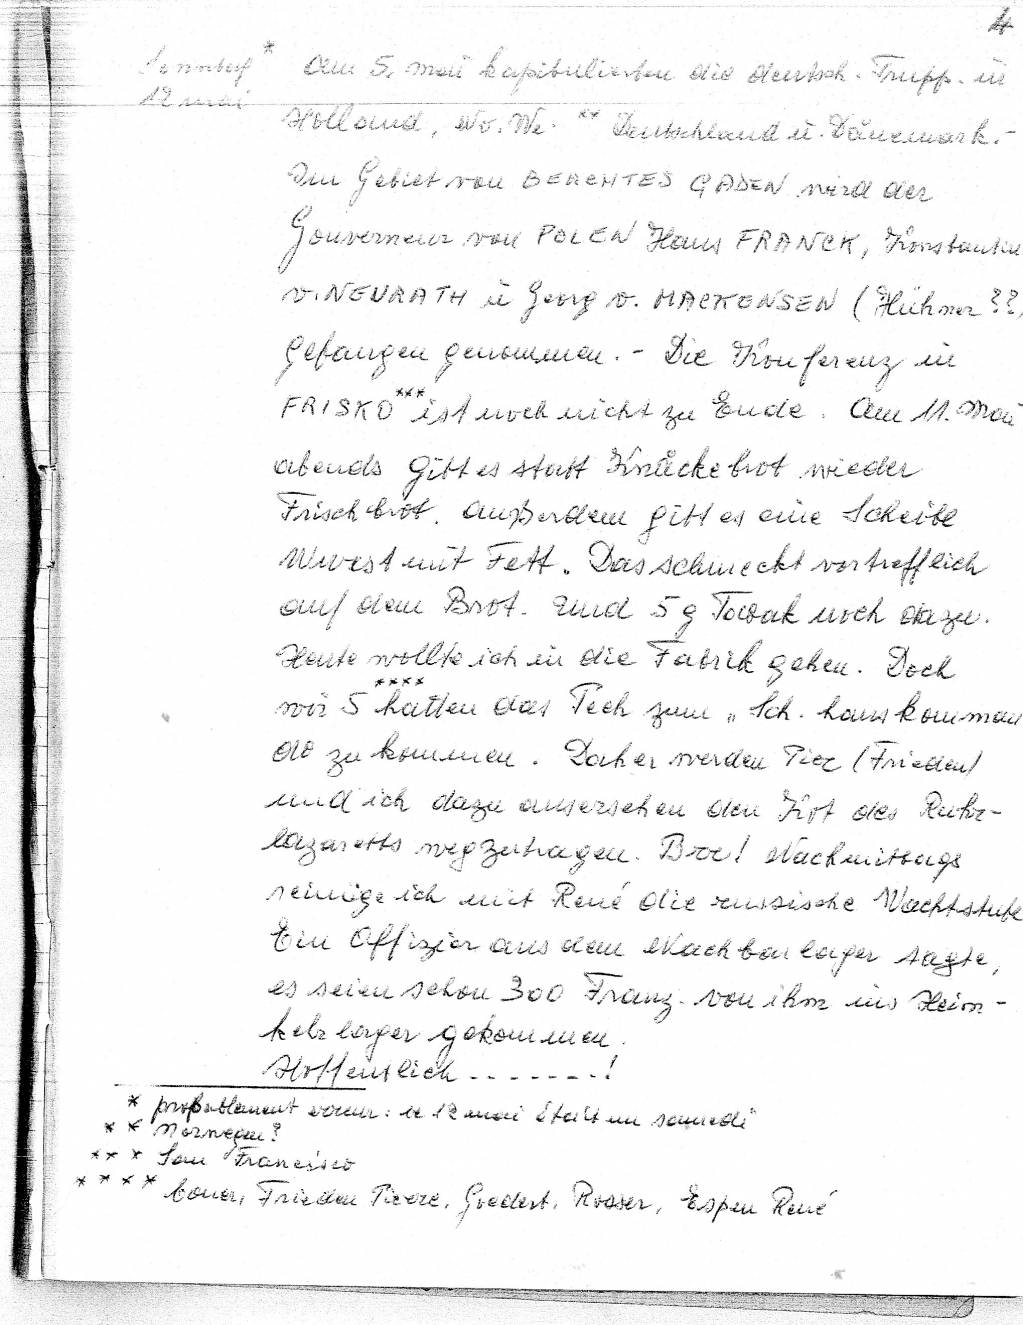 4
Sonntag * Am 5. Mai kapitulierten die deutsch. Trupp. in
12 Mai
Holland, No. We. ** Deutschland u. Dänemark. -
Im Gebiet von BERCHTES GADEN wird der
Gouverneur von POLEN Hans FRANCK, Konstantin
v. NEURATH u Georg v. MACKENSEN (Hühner ??)
gefangen genommen. - Die Konferenz in
FRISKO *** ist noch nicht zu Ende. Am 11. Mai
abends gibt es statt Knäckebrot wieder
Frischbrot. Außerdem gibt es eine Scheibe
Wurst mit Fett. Das schmeckt vortrefflich
auf dem Brot. Und 5 g Towak noch dazu.
Heute wollte ich in die Fabrik gehen. Doch
wir 5 **** hatten das Pech zum „Sch. hauskomman
do zu kommen. Daher werden Pier (Frieden)
und ich dazu ausersehen den Kot des Ruhr-
lazaretts wegzutragen. Brr! Nachmittags
reinige ich mit René die russische Wachtstube
Ein Offizier aus dem Nachbarlager sagte,
es seien schon 300 Franz. von ihm ins Heim-
kehrlager gekommen.
Hoffentlich - - - - - - - !
* probablement erreur: le 12 mai était un samedi
** Norwegen?
*** San Francisco
**** Frieden Pierre, Goedert, Rosser, Espen René